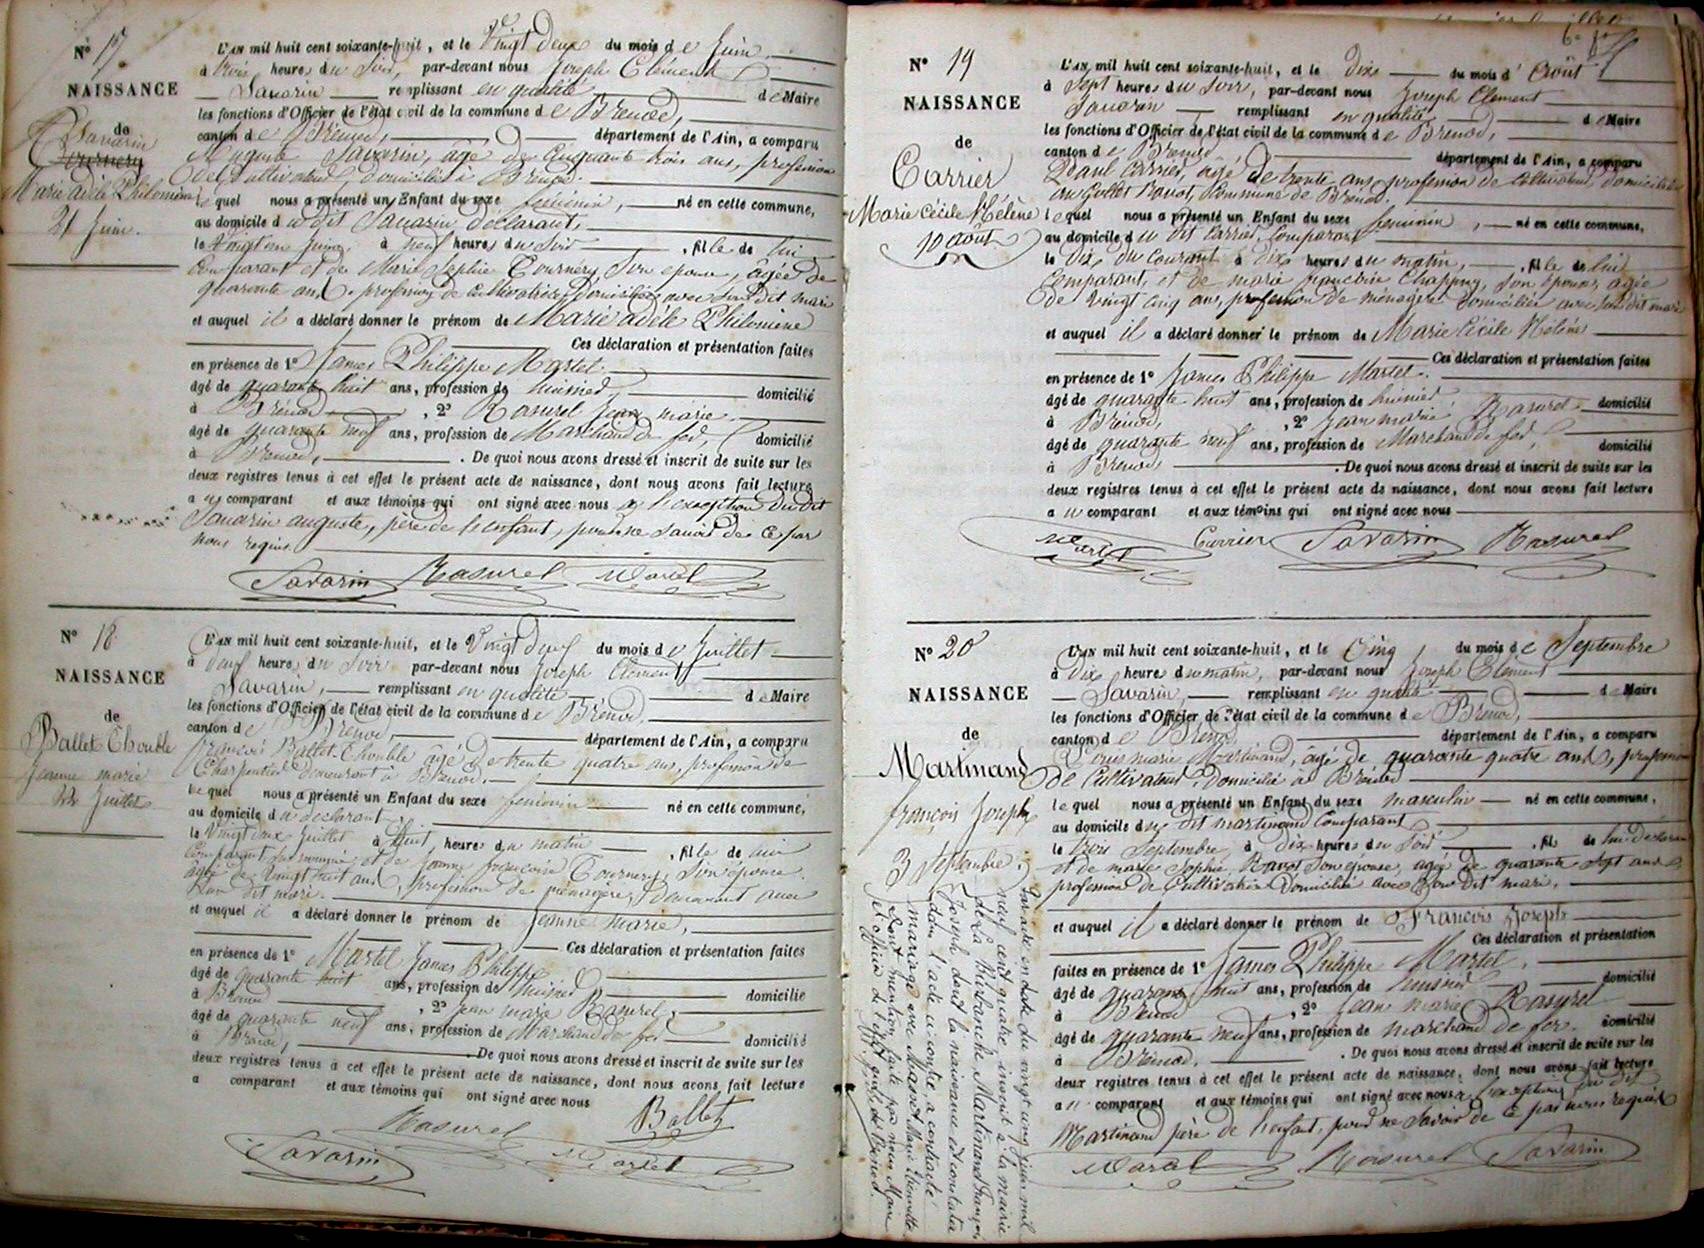 N° 17
NAISSANCE
de
Savarin
Tournery
Marie adèle Philomène
21 Juin.
L'AN mil huit cent soixante-huit, et le Vingt deux du mois de Juin
à trois heures du Soir, par-devant nous Joseph Clément
Savarin remplissant en qualité de Maire
les fonctions d'Officier de l'état civil de la commune de Brenod,
canton de Brénod, département de l'Ain, a comparu
Auguste Savarin, âgé de Cinquante trois ans, profession
de Cultivateur, domicilié à Brénod.
lequel nous a présenté un Enfant du sexe féminin, né en cette commune,
au domicile du dit Savarin déclarant,
le Vingt un Juin, à neuf heures du Soir, fille de lui
Comparant et de Marie Sophie Tournery, Son épouse, âgée de
quarante ans, profession de cultivatrice, domiciliée avec son dit mari
et auquel il a déclaré donner le prénom de Marie adèle Philomène
Ces déclaration et présentation faites
en présence de 1° James Philippe Martel.
âgé de quarante huit ans, profession de huissier, domicilié
à Brénod, 2° Rasurel Jean marie
âgé de quarante neuf ans, profession de Marchand de fer, domicilié
à Brenod, . De quoi nous avons dressé et inscrit de suite sur les
deux registres tenus à cet effet le présent acte de naissance, dont nous avons fait lecture
au comparant et aux témoins qui ont signé avec nous a l'exception du dit
Savarin auguste, père de l'enfant, pour ne savoir de ce par
nous requis.
Savarin Rasurel Martel
N° 18
NAISSANCE
de
Ballet Thouble
Jeanne marie
22 Juillet
L'AN mil huit cent soixante-huit, et le Vingt deux du mois de Juillet
à neuf heures du Soir par-devant nous Joseph Clément
Savarin, remplissant en qualité de Maire
les fonctions d'Officier de l'état civil de la commune de Brénod,
canton de Brenod, département de l'Ain, a comparu
françois Ballet-Thouble âgé de trente quatre ans, profession de
Charpentier demeurant à Brenod.
lequel nous a présenté un Enfant du sexe féminin né en cette commune,
au domicile du déclarant,
le Vingt deux Juillet à huit heures du matin, fille de lui
Comparant et de Jeanne françoise Tournery, Son épouse
âgée de Vingt huit ans, profession de ménagère, demeurant avec
Son dit mari.
et auquel il a déclaré donner le prénom de Jeanne marie,
Ces déclaration et présentation faites
en présence de 1° Martel James Philippe
âgé de quarante huit ans, profession de huissier, domicilié
à Brénod, 2° Jean marie Rasurel,
âgé de quarante neuf ans, profession de Marchand de fer domicilié
à Brenod, De quoi nous avons dressé et inscrit de suite sur les
deux registres tenus à cet effet le présent acte de naissance, dont nous avons fait lecture
a comparant et aux témoins qui ont signé avec nous
Rasurel Ballet
Savarin Martel
N° 19
NAISSANCE
de
Carrier
Marie Cécile Hélène
10 août
L'AN mil huit cent soixante-huit, et le dix du mois d'Août
à Sept heures du Soir, par-devant nous Joseph Clément
Savarin remplissant en qualité de Maire
les fonctions d'Officier de l'état civil de la commune de Brenod,
canton de Brenod département de l'Ain, a comparu
Paul Carrier, âgé de trente ans, profession de Cultivateur, domicilié
Commune de Brenod.
lequel nous a présenté un Enfant du sexe féminin, né en cette commune,
au domicile du dit Carrier, Comparant
le Dix du Courant à dix heures du matin, fille de lui
Comparant, et de marie françoise Chappuy, son épouse, âgée
de Vingt cinq ans, profession de ménagère domiciliée avec son dit mari
et auquel il a déclaré donner le prénom de Marie Cécile Hélène
Ces déclaration et présentation faites
en présence de 1° James Philippe Martel.
âgé de quarante huit ans, profession de huissier domicilié
à Brénod, 2° Jean marie Rasurel
âgé de quarante neuf ans, profession de Marchand de fer, domicilié
à Brénod, . De quoi nous avons dressé et inscrit de suite sur les
deux registres tenus à cet effet le présent acte de naissance, dont nous avons fait lecture
au comparant et aux témoins qui ont signé avec nous
Martel Carrier Savarin Rasurel
N° 20
NAISSANCE
de
Martinand
françois Joseph
3 Septembre
L'AN mil huit cent soixante-huit, et le Cinq du mois de Septembre
à dix heures du matin, par-devant nous Joseph Clément
Savarin, remplissant en qualité de Maire
les fonctions d'Officier de l'état civil de la commune de Brénod,
canton de Brénod département de l'Ain, a comparu
Louis marie Martinand, âgé de quarante quatre ans, profession
de Cultivateur, Domicilié à Brenod
lequel nous a présenté un Enfant du sexe masculin né en cette commune,
au domicile du dit martinand Comparant
le trois Septembre, à dix heures du Soir, fil de lui déclarant
et de marie Sophie Ravot Son épouse, agée de quarante Sept ans
profession de Cultivatrice Domiciliée avec Son dit mari,
et auquel il a déclaré donner le prénom de François Joseph
Ces déclaration et présentation
faites en présence de 1° James Philippe Martel,
âgé de quarante huit ans, profession de huissier domicilié
à Brenod, 2° Jean marie Rasurel
âgé de quarante neuf ans, profession de marchand de fer. domicilié
à Brénod. . De quoi nous avons dressé et inscrit de suite sur les
deux registres tenus à cet effet le présent acte de naissance, dont nous avons fait lecture
au comparant et aux témoins qui ont signé avec nous a l'exception du dit
Martinand père de l'enfant, pour ne savoir de ce par nous requis
Martel Rasurel Savarin
Par acte en date du vingt cinq juin mil
neuf cent quatre, inscrit à la mairie
de La Burbanche, Martinand François
Joseph dont la naissance est constatée
dans l'acte ci-contre, a contracté
mariage avec
Dont mention faite par nous Maire
et officier de l'état civil de Brénod.